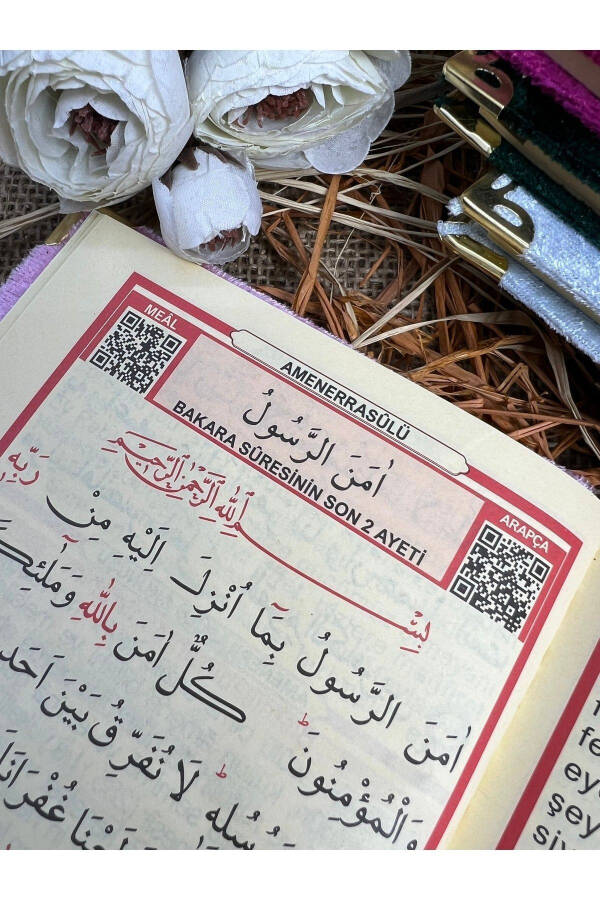 MEÂL
AMENERRASÛLÜ
اٰمَنَ الرَّسُولُ
BAKARA SÛRESİNİN SON 2 AYETİ
ARAPÇA
بِسْمِ اللّٰهِ الرَّحْمٰنِ الرَّحِيمِ
اٰمَنَ الرَّسُولُ بِمَٓا اُنْزِلَ اِلَيْهِ مِنْ رَبِّهِ
وَالْمُؤْمِنُونَ ط كُلٌّ اٰمَنَ بِاللّٰهِ وَمَلٰٓئِكَ
لَا نُفَرِّقُ بَيْنَ اَحَدٍ
غُفْرَانَ
fe
şey